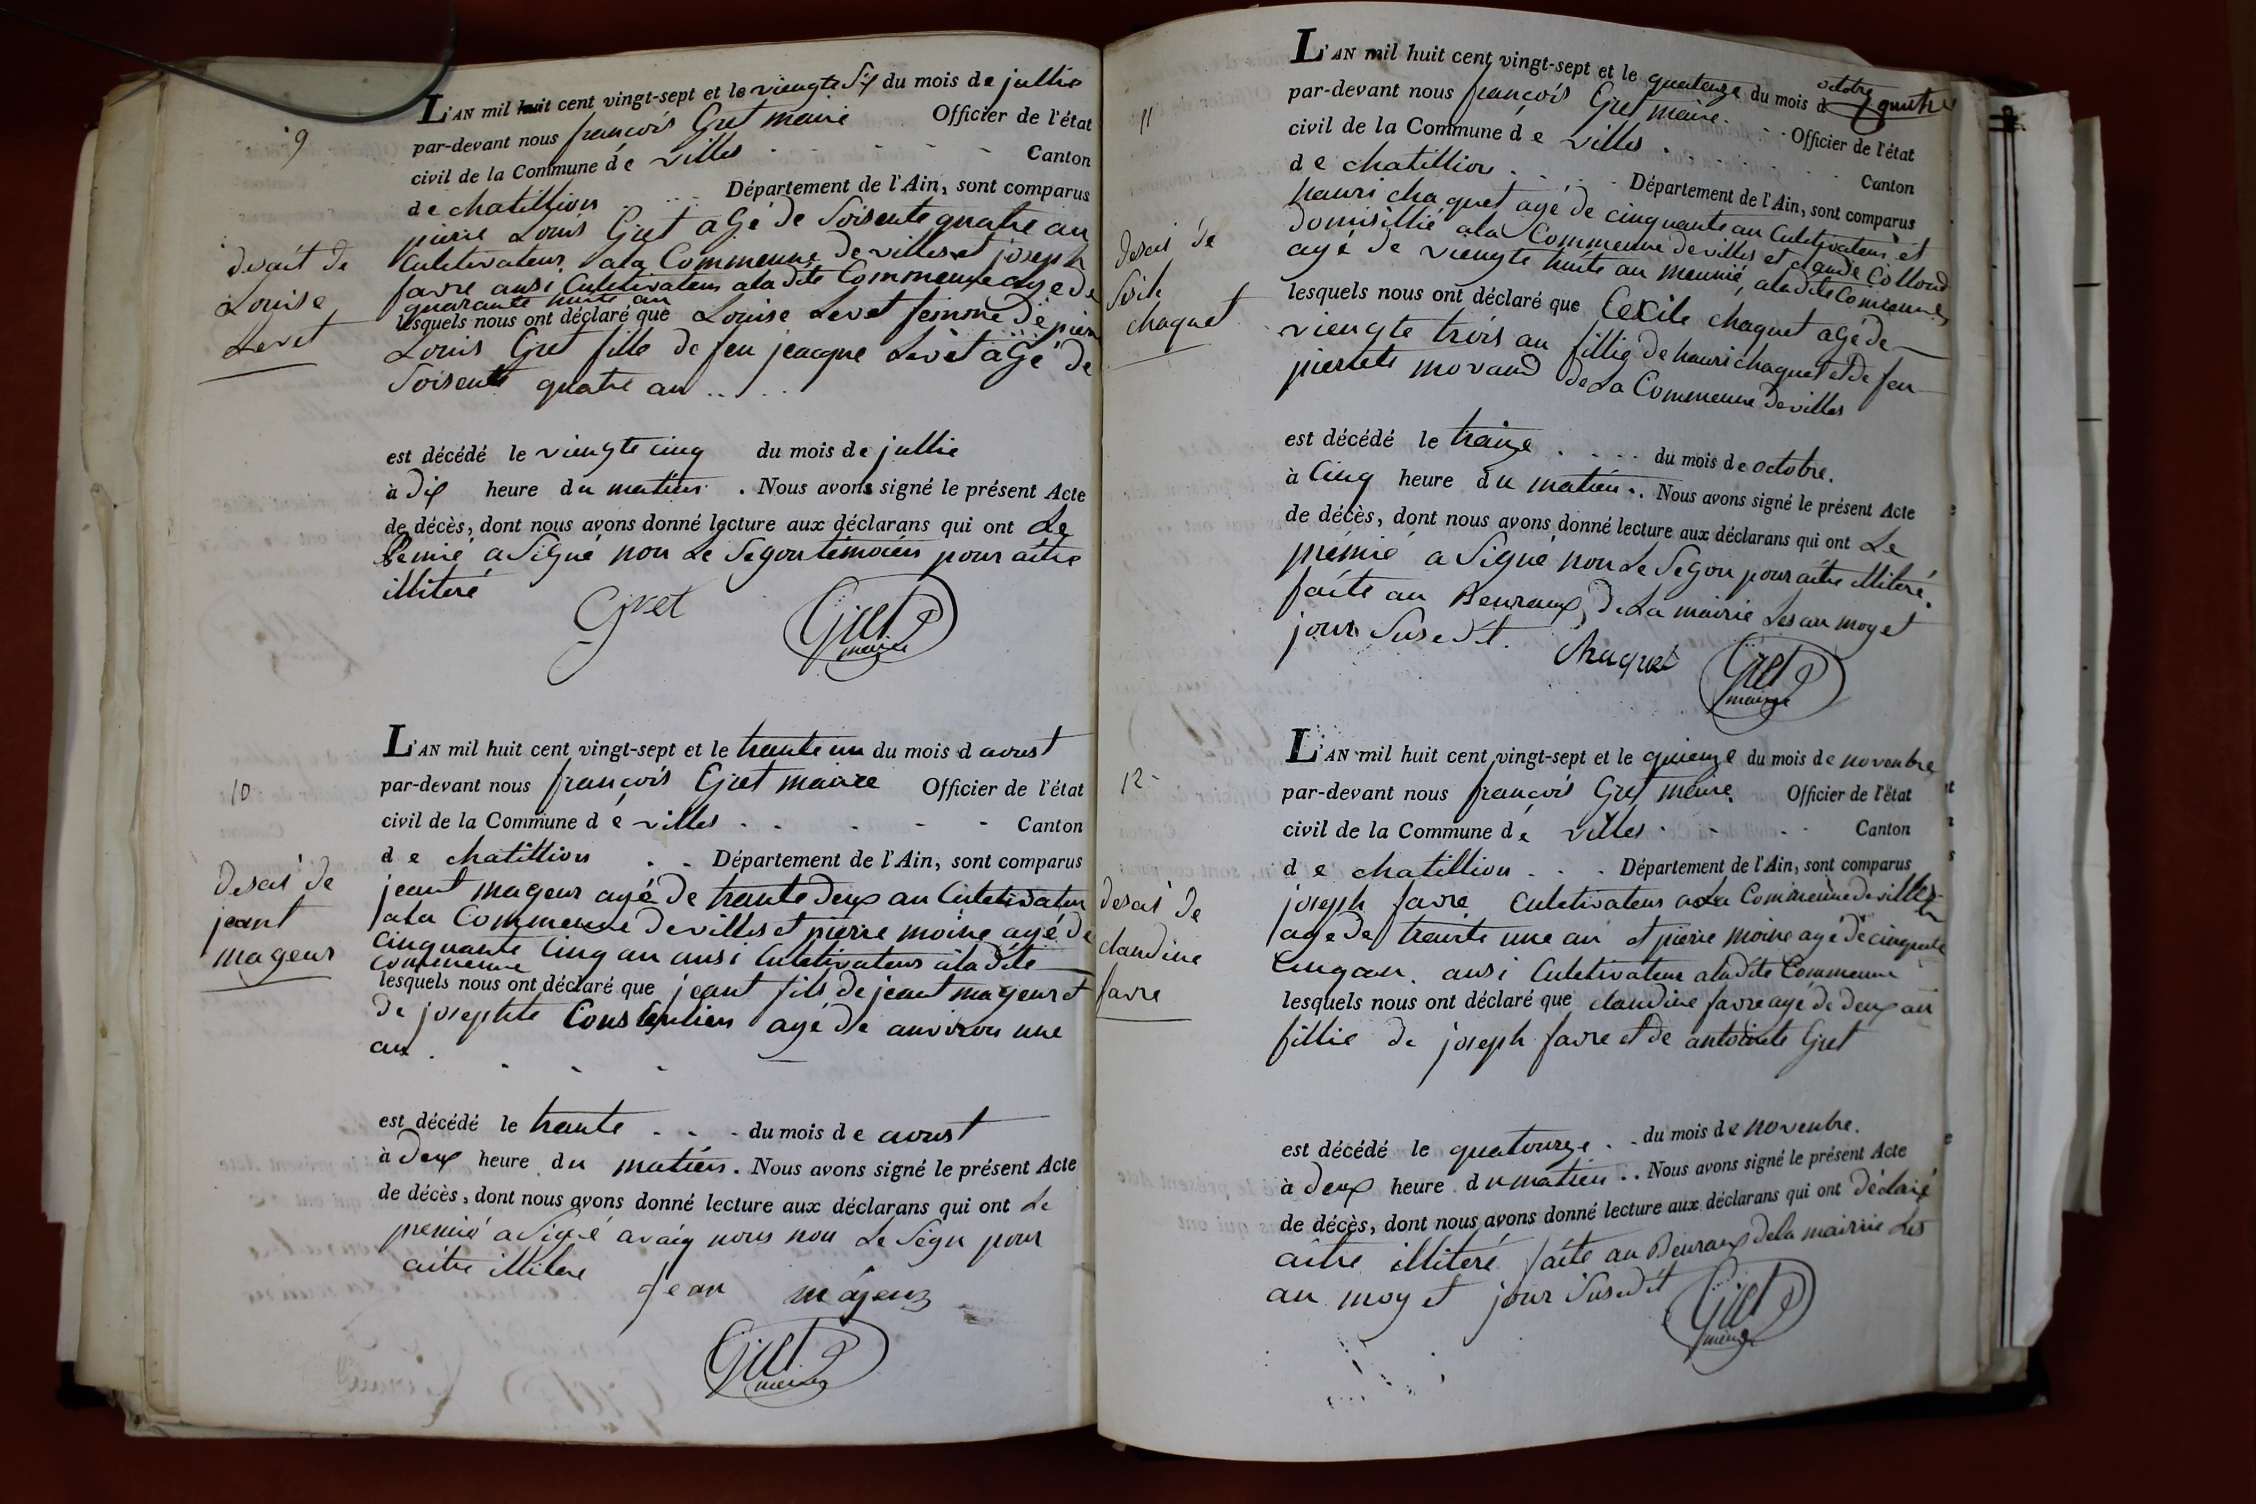 9
L'AN mil huit cent vingt-sept et le viengte Six du mois de jullie
par-devant nous françois Gret maire Officier de l'état
civil de la Commune dé villes - - - - - Canton
de chatillion . . . . Département de l'Ain, sont comparus
pierre Louis Gret agé de Soisente quatre an
Cultivateur a la Commeune de villes et joseph
favre ausi Cultivateur a la dite Commeune age de
quarante huite an
lesquels nous ont déclaré que Louise Levet femme de pierre
Louis Gret fille de feu jeacque Levet agé de
Soisente quatre an . . . .
desait de
Louise
Levet
est décédé le viengte cinq du mois de jullie
à dix heure du matien . Nous avons signé le présent Acte
de décès, dont nous avons donné lecture aux déclarans qui ont Le
Premié a Signé non Le Segon témoien pour aitre
illiteré
Gret Gret
maire
10
L'AN mil huit cent vingt-sept et le trante un du mois d aoust
par-devant nous françois Gret maire Officier de l'état
civil de la Commune d é villes - - - - - Canton
d e chatillion . - Département de l'Ain, sont comparus
jeant mageur agé de trante deux an Cultivateur
a la Commeune de villes et pierre moine agé de
cinquante Cinq an ausi Cultivateur a la dite
Commeune
lesquels nous ont déclaré que jeant fils de jeant mageur et
de josephte Consentien agé de anviron une
an . - - -
desai de
jeant
mageur
est décédé le trante . - . - du mois d e aoust
à deux heure du matien . Nous avons signé le présent Acte
de décès, dont nous avons donné lecture aux déclarans qui ont Le
premié a Signé avaiq nous non Le Segn pour
aitre illiteré
Jean màjeur
Gret
maire
11
L'AN mil huit cent vingt-sept et le quatenze du mois d octobre
par-devant nous françois Gret maire . - . Officier de l'état
civil de la Commune d e villes . . . . - Canton
d e chatillion . . . . Département de l'Ain, sont comparus
hanri chaquet agé de cinquante an Cultivateur et
domisillié a la Commeune de villes et claude Collond
agé de viengte huite an meunié, a la dite Commeune
lesquels nous ont déclaré que Cecile chaquet agé de
viengte trois an fillie de hanri chaquet et de feu
pierrete movand de La Commeune de villes
desai de
Sisile
chaquet
est décédé le traize . . . . du mois de octobre.
à Cinq heure du matien . . Nous avons signé le présent Acte
de décès, dont nous avons donné lecture aux déclarans qui ont Le
prémié a Signé non Le Segon pour aitre illiteré.
faite au Beuraux de La mairie Les an moy et
jour Susedit.
Chaquet Gret
maire
12-
L'AN mil huit cent vingt-sept et le quienze du mois d e novenbre
par-devant nous françois Gret maire. Officier de l'état
civil de la Commune dé villes - - - - Canton
d e chatillion . - . Département de l'Ain, sont comparus
joseph favre Cultivateur a La Commeune de villes
age de trante une an et pierre moine age de cinquante
Cinq an ausi Cultivateur a la dite Commeune
lesquels nous ont déclaré que claudine favre agé de deux an
fillie de joseph favre et de antoinete Gret
desai de
claudine
favre
est décédé le quatourze . . du mois d e novenbre.
à deux heure du matien . . Nous avons signé le présent Acte
de décès, dont nous avons donné lecture aux déclarans qui ont déclaré
aitre illiteré faite au Beuraux de la mairie Les
an moy et jour Susedit
Gret
maire